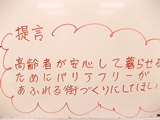 提言
高齢者が安心して暮らせる
ためにバリアフリーが
あふれる街づくりにしてほしい